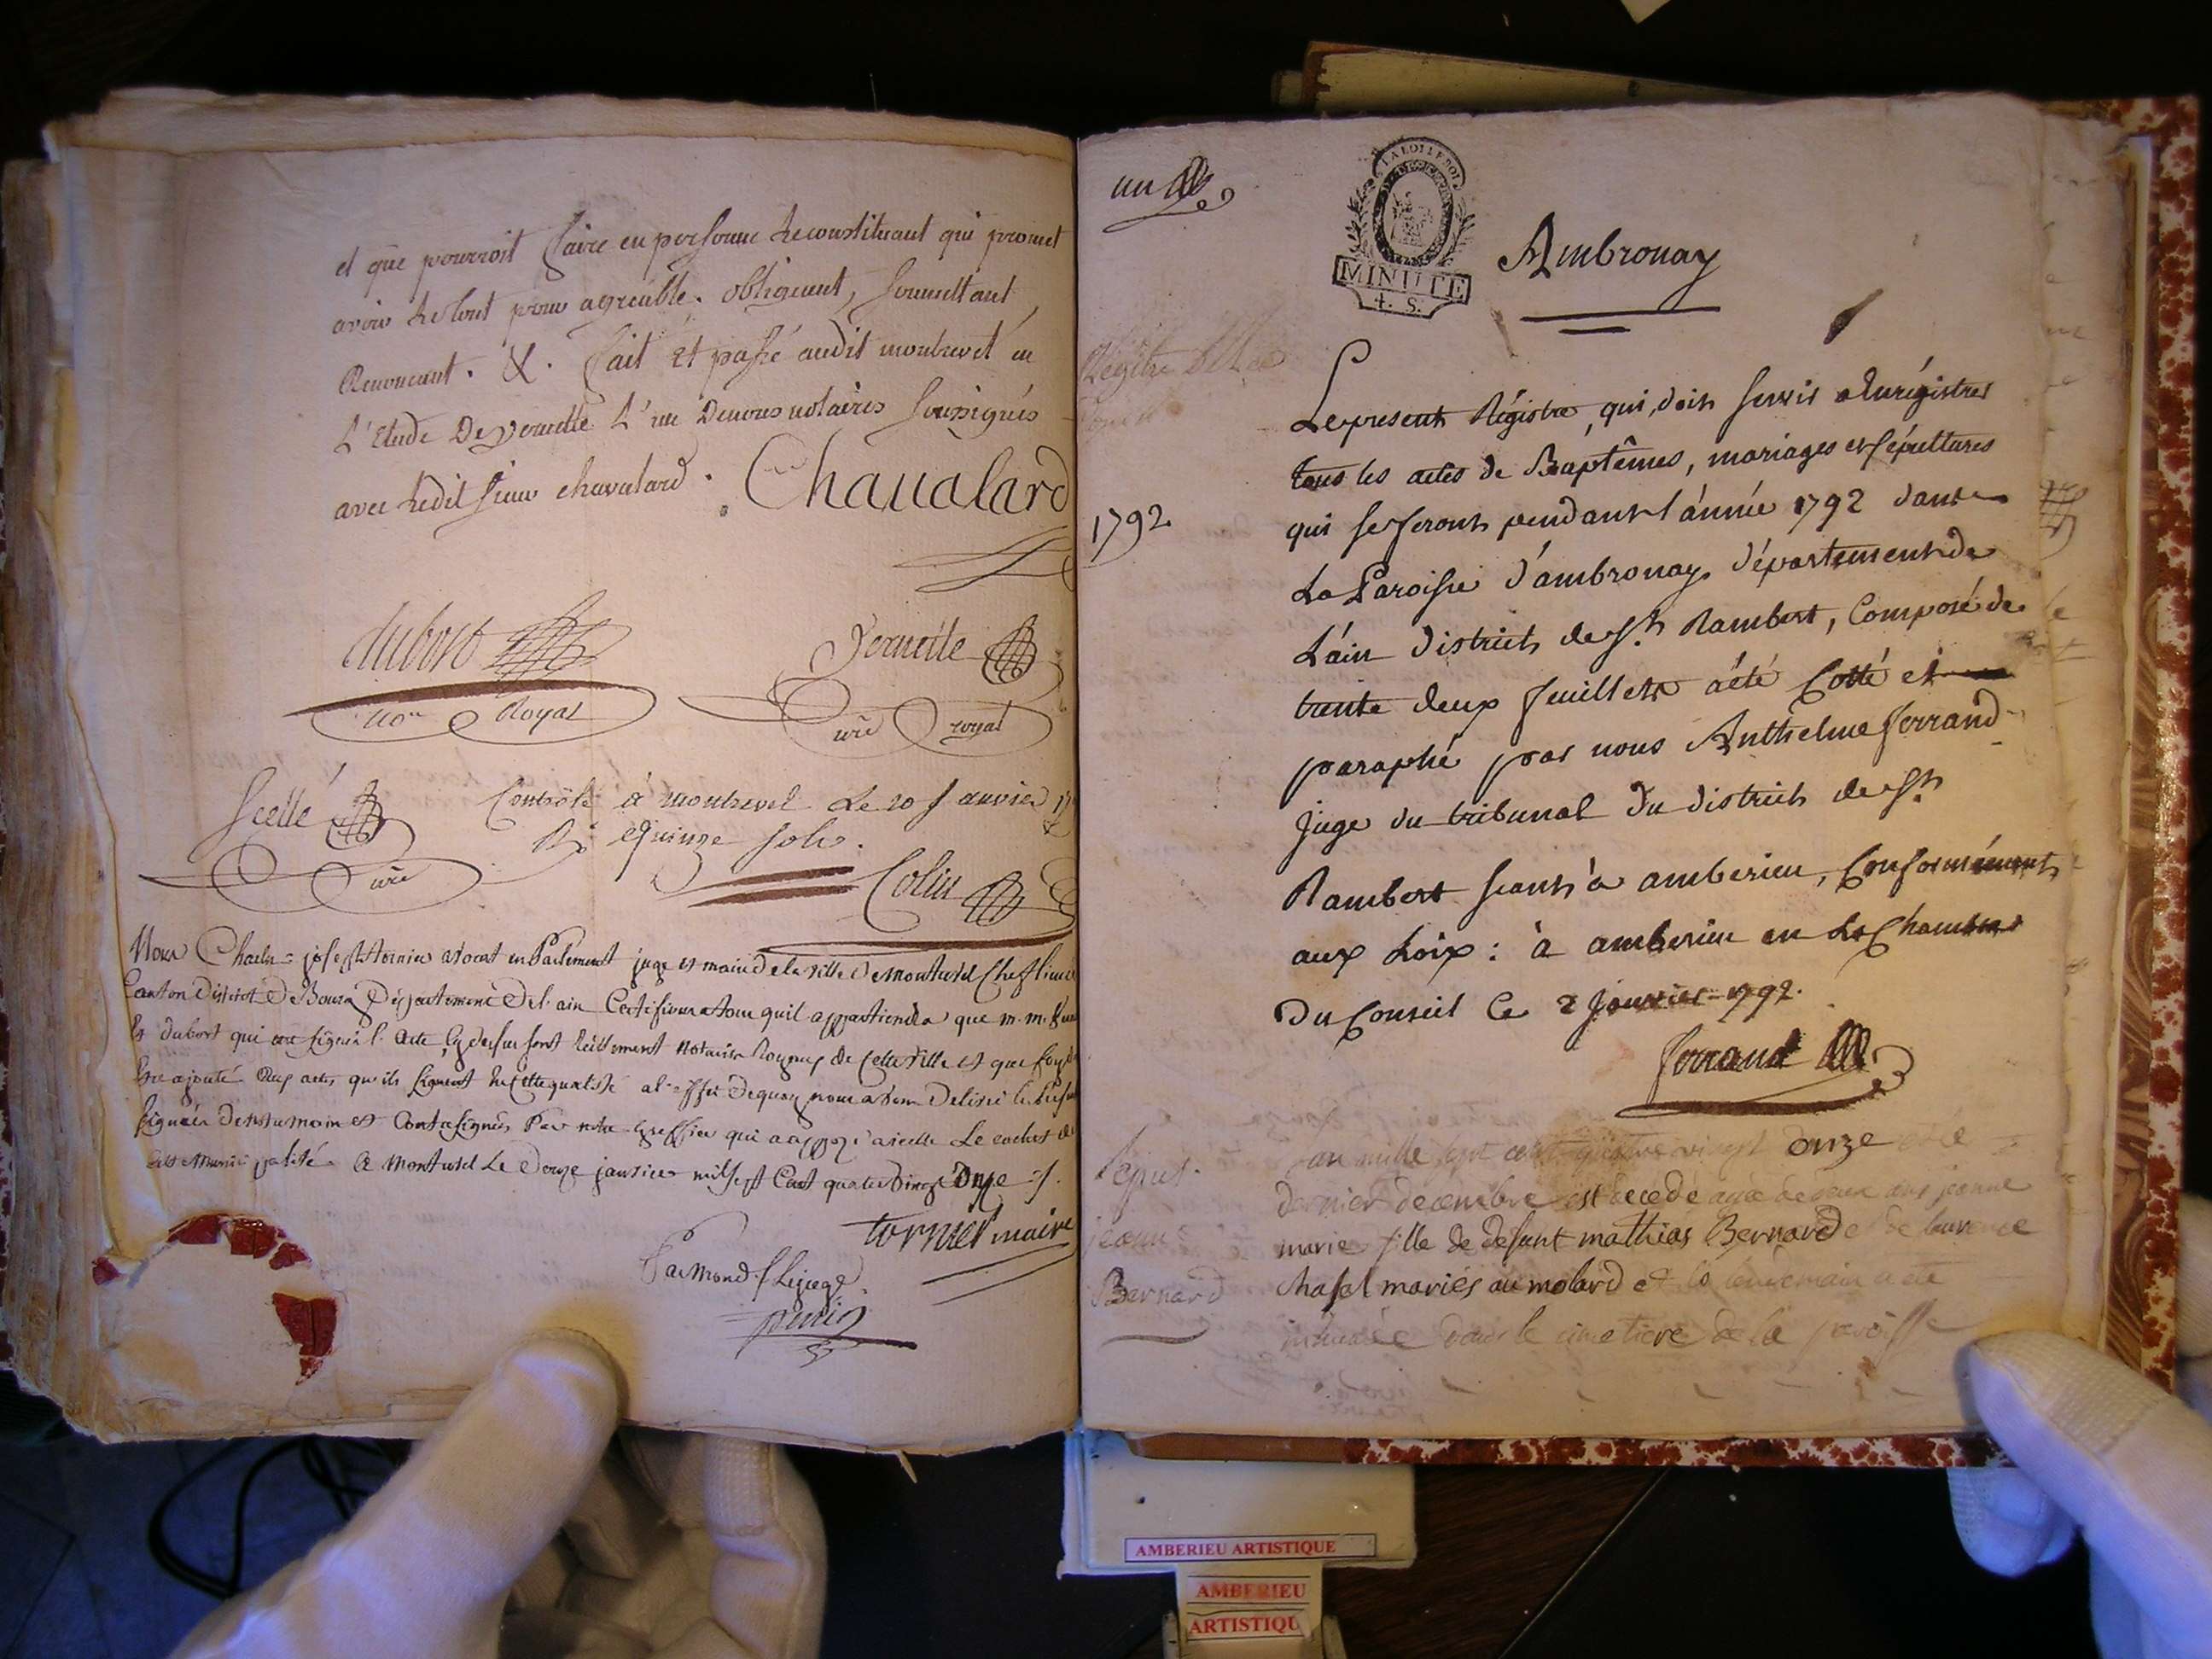 et que pourroit faire en personne le constituant qui promet
avoir le tout pour agreable. obligeant, soumettant
Renonceant. &. fait et passé audit montrevel en
L'Etude De vernette L'un De nous notaires soussignés
avec ledit sieur chavalard. Chaualard
dubort
vernette
Royal
nre royal
Scellé
Controlé à montrevel Le 20 Janvier
R. quinze sols.
nre
Colin
Nous Charles joseph tornier avocat en Parlement juge et maire de la ville de montrevel Chef lieu de
Canton District De Bourg Département De l'ain Certifions a tous quil appartiendra que m. m.
& dubort qui ont signés l'acte cy dessus sont réellement notaires Royaux de cette ville et que foy doit
être ajouté aux actes qu'ils signent en cette qualité de quoy nous avons Delivré le
signées De notre main et Contresignés Par notre greffier qui a apposé a icelle Le cachet de
cette municipalité a Montrevel Le Douze janvier mil sept Cent quatre vingt Onze
tornier maire
un
LA LOI LE ROI
MINUTE
4. S.
Ambronay
Le present Régistre, qui doit servir a Enrégistrer
tous les actes de Baptêmes, mariages et sépultures
1792
qui se feront pendant l'année 1792 dans
La Paroisse d'ambronay département de
L'ain district de St. Rambert, Composé de
trente deux feuillets a été Cotté et
paraphé par nous Anthelme ferrand
juge du tribunal Du district de St.
Rambert seant à amberieu, Conformément
aux Loix: à amberieu en La Chambre
Du Conseil Ce 2 Janvier 1792.
ferrand
L'an mille sept cent quatre vingt onze et le
dernier decembre est decedé agée de deux ans jeanne
marie fille de defunt mathias Bernard et de laurence
chasel mariés au molard et le lendemain a été
inhumée dans le cimetiere de la paroisse
sepult.
jeanne
Bernard
AMBERIEU ARTISTIQUE
AMBERIEU
ARTISTIQU